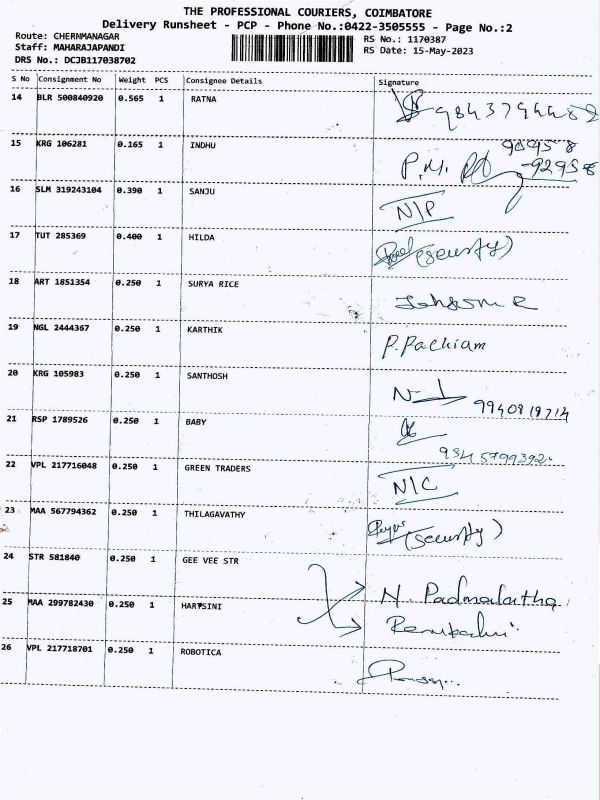 THE PROFESSIONAL COURIERS, COIMBATORE
Delivery Runsheet - PCP - Phone No.:0422-3505555 - Page No.:2
Route: CHERNMANAGAR
Staff: MAHARAJAPANDI
DRS No.: DCJB117038702
RS No.: 1170387
RS Date: 15-May-2023
S No Consignment No Weight PCS Consignee Details Signature
14 BLR 500840920 0.565 1 RATNA
15 KRG 106281 0.165 1 INDHU P.M.
16 SLM 319243104 0.390 1 SANJU N/P
17 TUT 285369 0.400 1 HILDA (security)
18 ART 1851354 0.250 1 SURYA RICE
19 NGL 2444367 0.250 1 KARTHIK P.Pachiam
20 KRG 105983 0.250 1 SANTHOSH
21 RSP 1789526 0.250 1 BABY
22 VPL 217716048 0.250 1 GREEN TRADERS N/C
23 MAA 567794362 0.250 1 THILAGAVATHY (security)
24 STR 581840 0.250 1 GEE VEE STR
25 MAA 299782430 0.250 1 HARVSINI N. Padmalatha
26 VPL 217718701 0.250 1 ROBOTICA